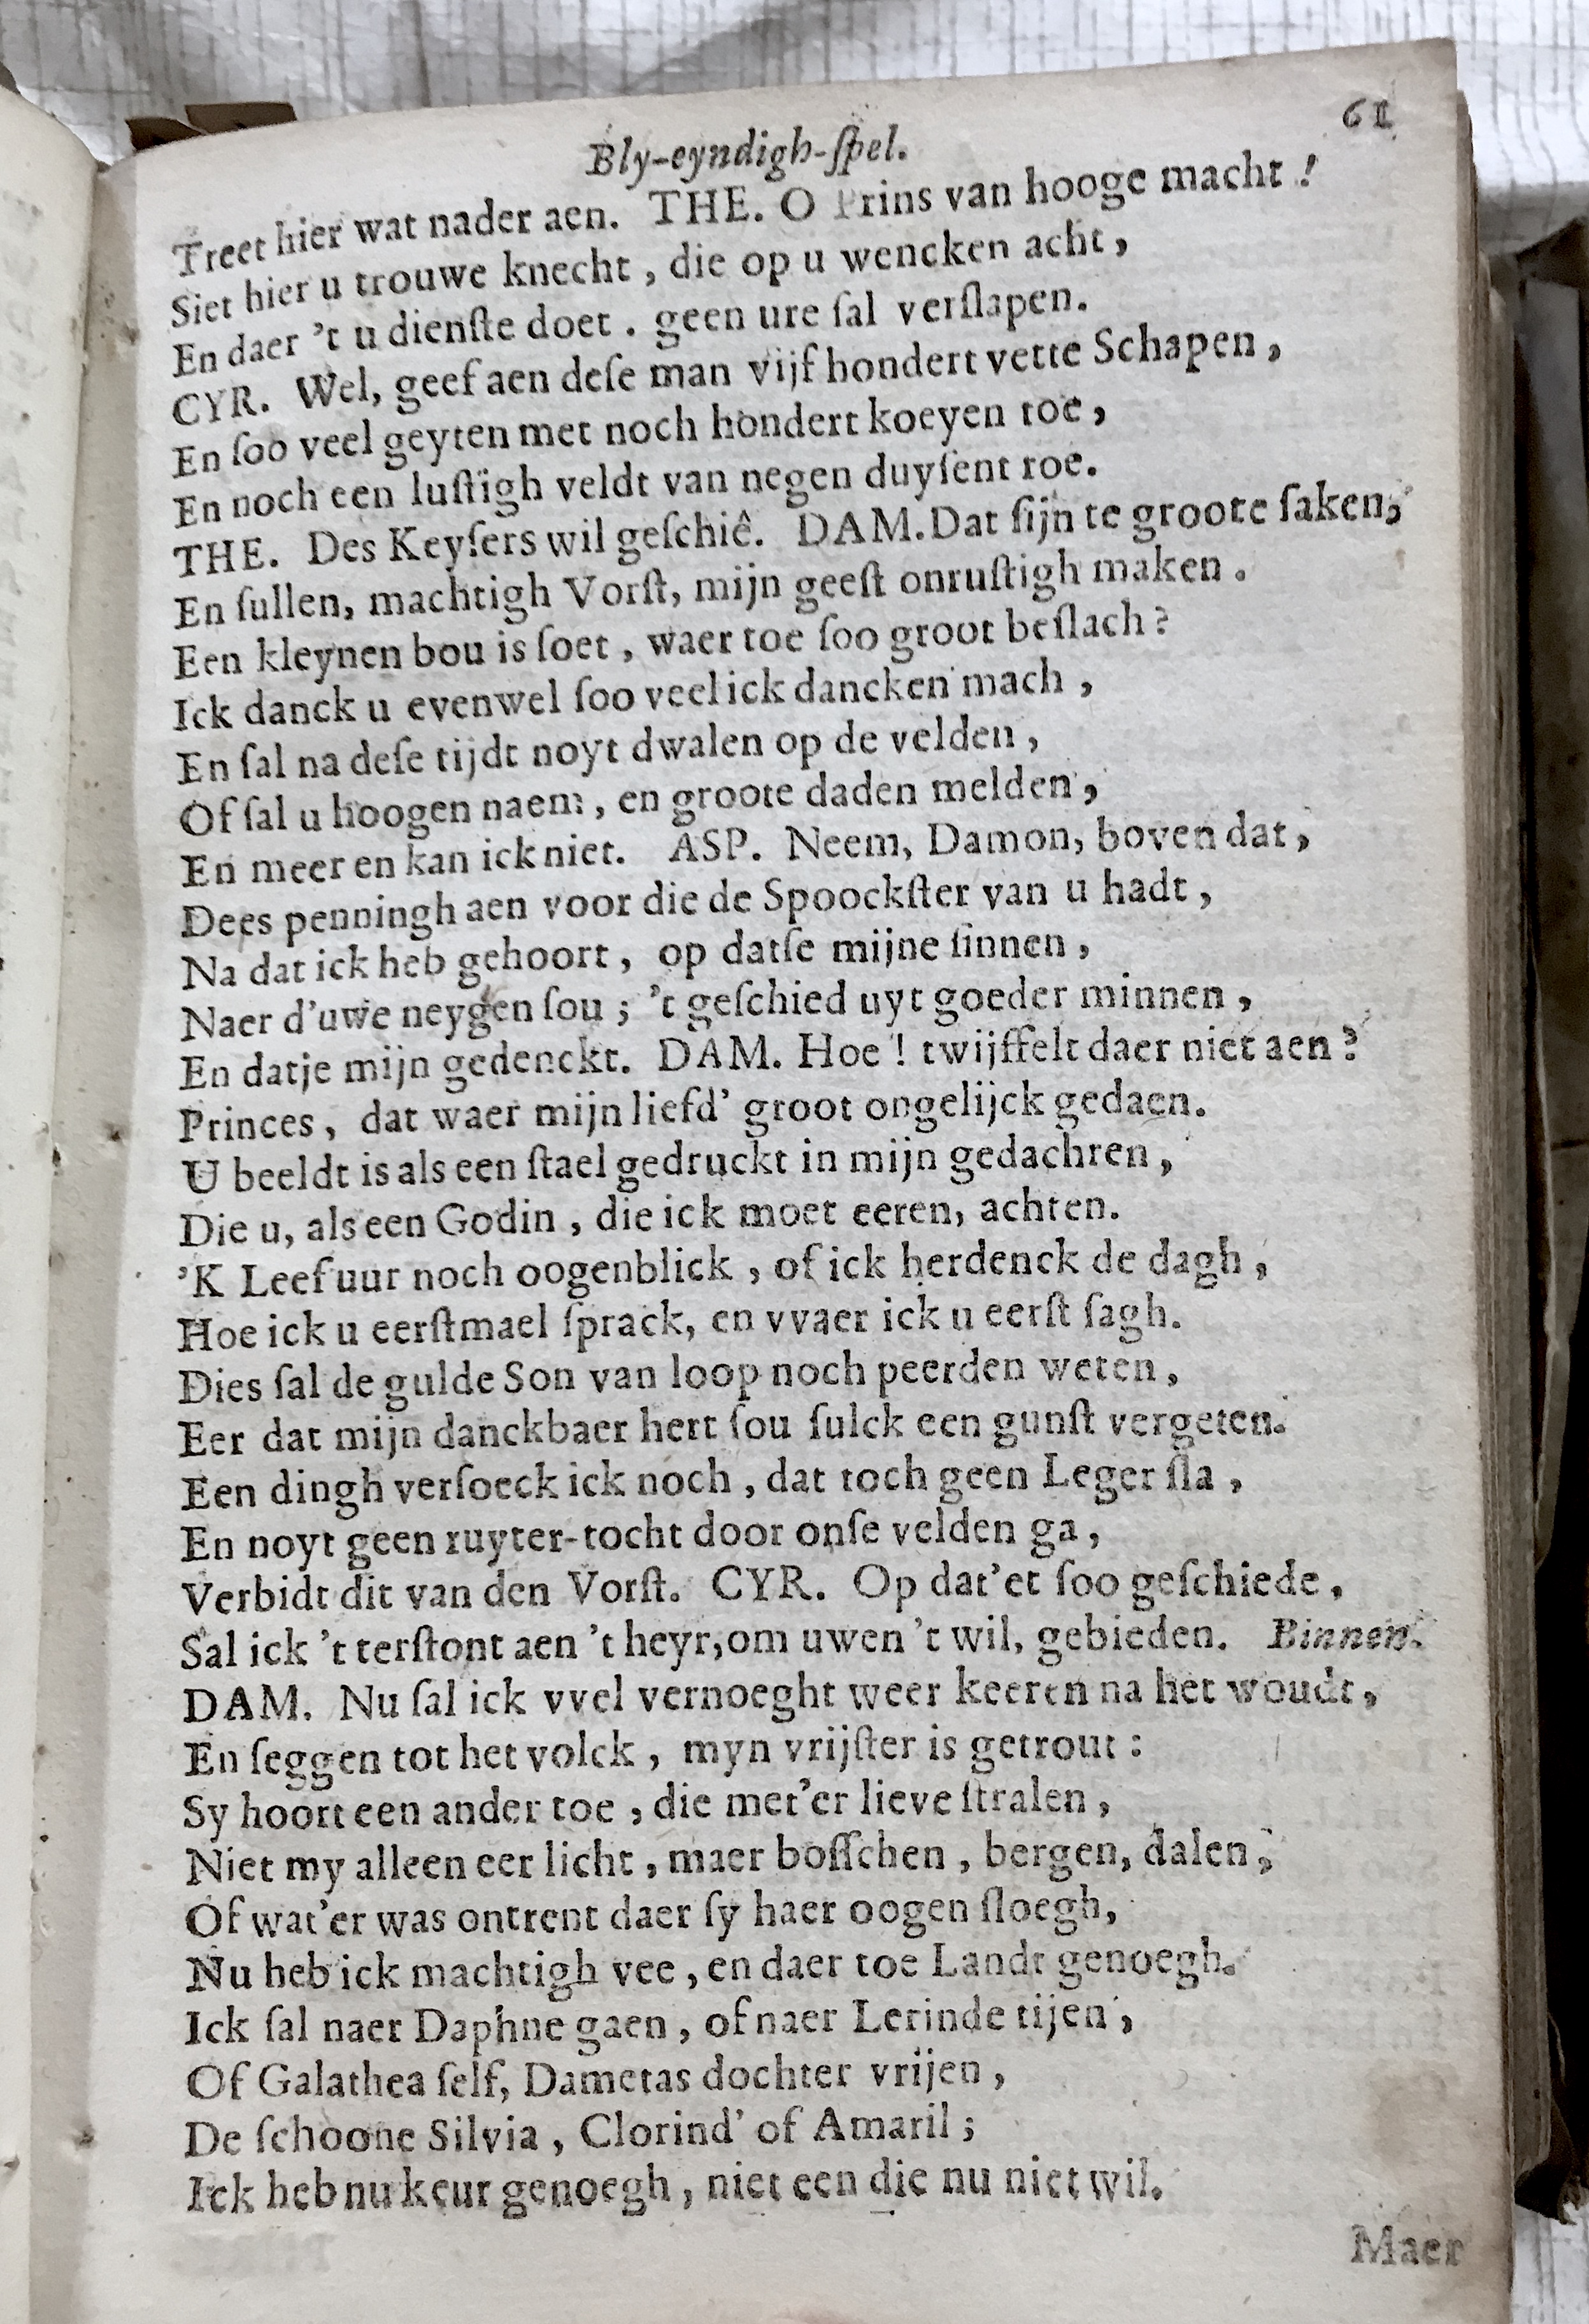 Bly-eyndigh-ſpel. 61
Treet hier wat nader aen. THE. O Prins van hooge macht !
Siet hier u trouwe knecht , die op u wencken acht ,
En daer ’t u dienſte doet . geen ure ſal verſlapen.
CYR. Wel, geef aen deſe man vijf hondert vette Schapen ,
En ſoo veel geyten met noch hondert koeyen toe ,
En noch een luſtigh veldt van negen duyſent roe.
THE. Des Keyſers wil geſchiê. DAM. Dat ſijn te groote ſaken,
En ſullen, machtigh Vorſt, mijn geeſt onruſtigh maken .
Een kleynen bou is ſoet , waer toe ſoo groot beſlach ?
Ick danck u evenwel ſoo veel ick dancken mach ,
En ſal na deſe tijdt noyt dwalen op de velden ,
Of ſal u hoogen naem , en groote daden melden ,
En meer en kan ick niet. ASP. Neem, Damon, boven dat ,
Dees penningh aen voor die de Spoockſter van u hadt ,
Na dat ick heb gehoort , op datſe mijne ſinnen ,
Naer d'uwe neygen ſou ; ’t geſchied uyt goeder minnen ,
En datje mijn gedenckt. DAM. Hoe ! twijffelt daer niet aen ?
Princes , dat waer mijn liefd’ groot ongelijck gedaen.
U beeldt is als een ſtael gedruckt in mijn gedachten ,
Die u, als een Godin , die ick moet eeren, achten.
’K Leef uur noch oogenblick , of ick herdenck de dagh ,
Hoe ick u eerſtmael ſprack, en vvaer ick u eerſt ſagh.
Dies ſal de gulde Son van loop noch peerden weten ,
Eer dat mijn danckbaer hert ſou ſulck een gunſt vergeten.
Een dingh verſoeck ick noch , dat toch geen Leger ſla ,
En noyt geen ruyter-tocht door onſe velden ga ,
Verbidt dit van den Vorſt. CYR. Op dat’et ſoo geſchiede ,
Sal ick ’t terſtont aen ’t heyr, om uwen ’t wil, gebieden. Binnen.
DAM. Nu ſal ick vvel vernoeght weer keeren na het woudt ,
En ſeggen tot het volck , myn vrijſter is getrout :
Sy hoort een ander toe , die met’er lieve ſtralen ,
Niet my alleen eer licht , maer boſſchen , bergen, dalen ,
Of wat’er was ontrent daer ſy haer oogen ſloegh,
Nu heb ick machtigh vee , en daer toe Landt genoegh.
Ick ſal naer Daphne gaen , of naer Lerinde tijen ,
Of Galathea ſelf, Dametas dochter vrijen ,
De ſchoone Silvia , Clorind’ of Amaril ;
Ick heb nu keur genoegh , niet een die nu niet wil.
Maer